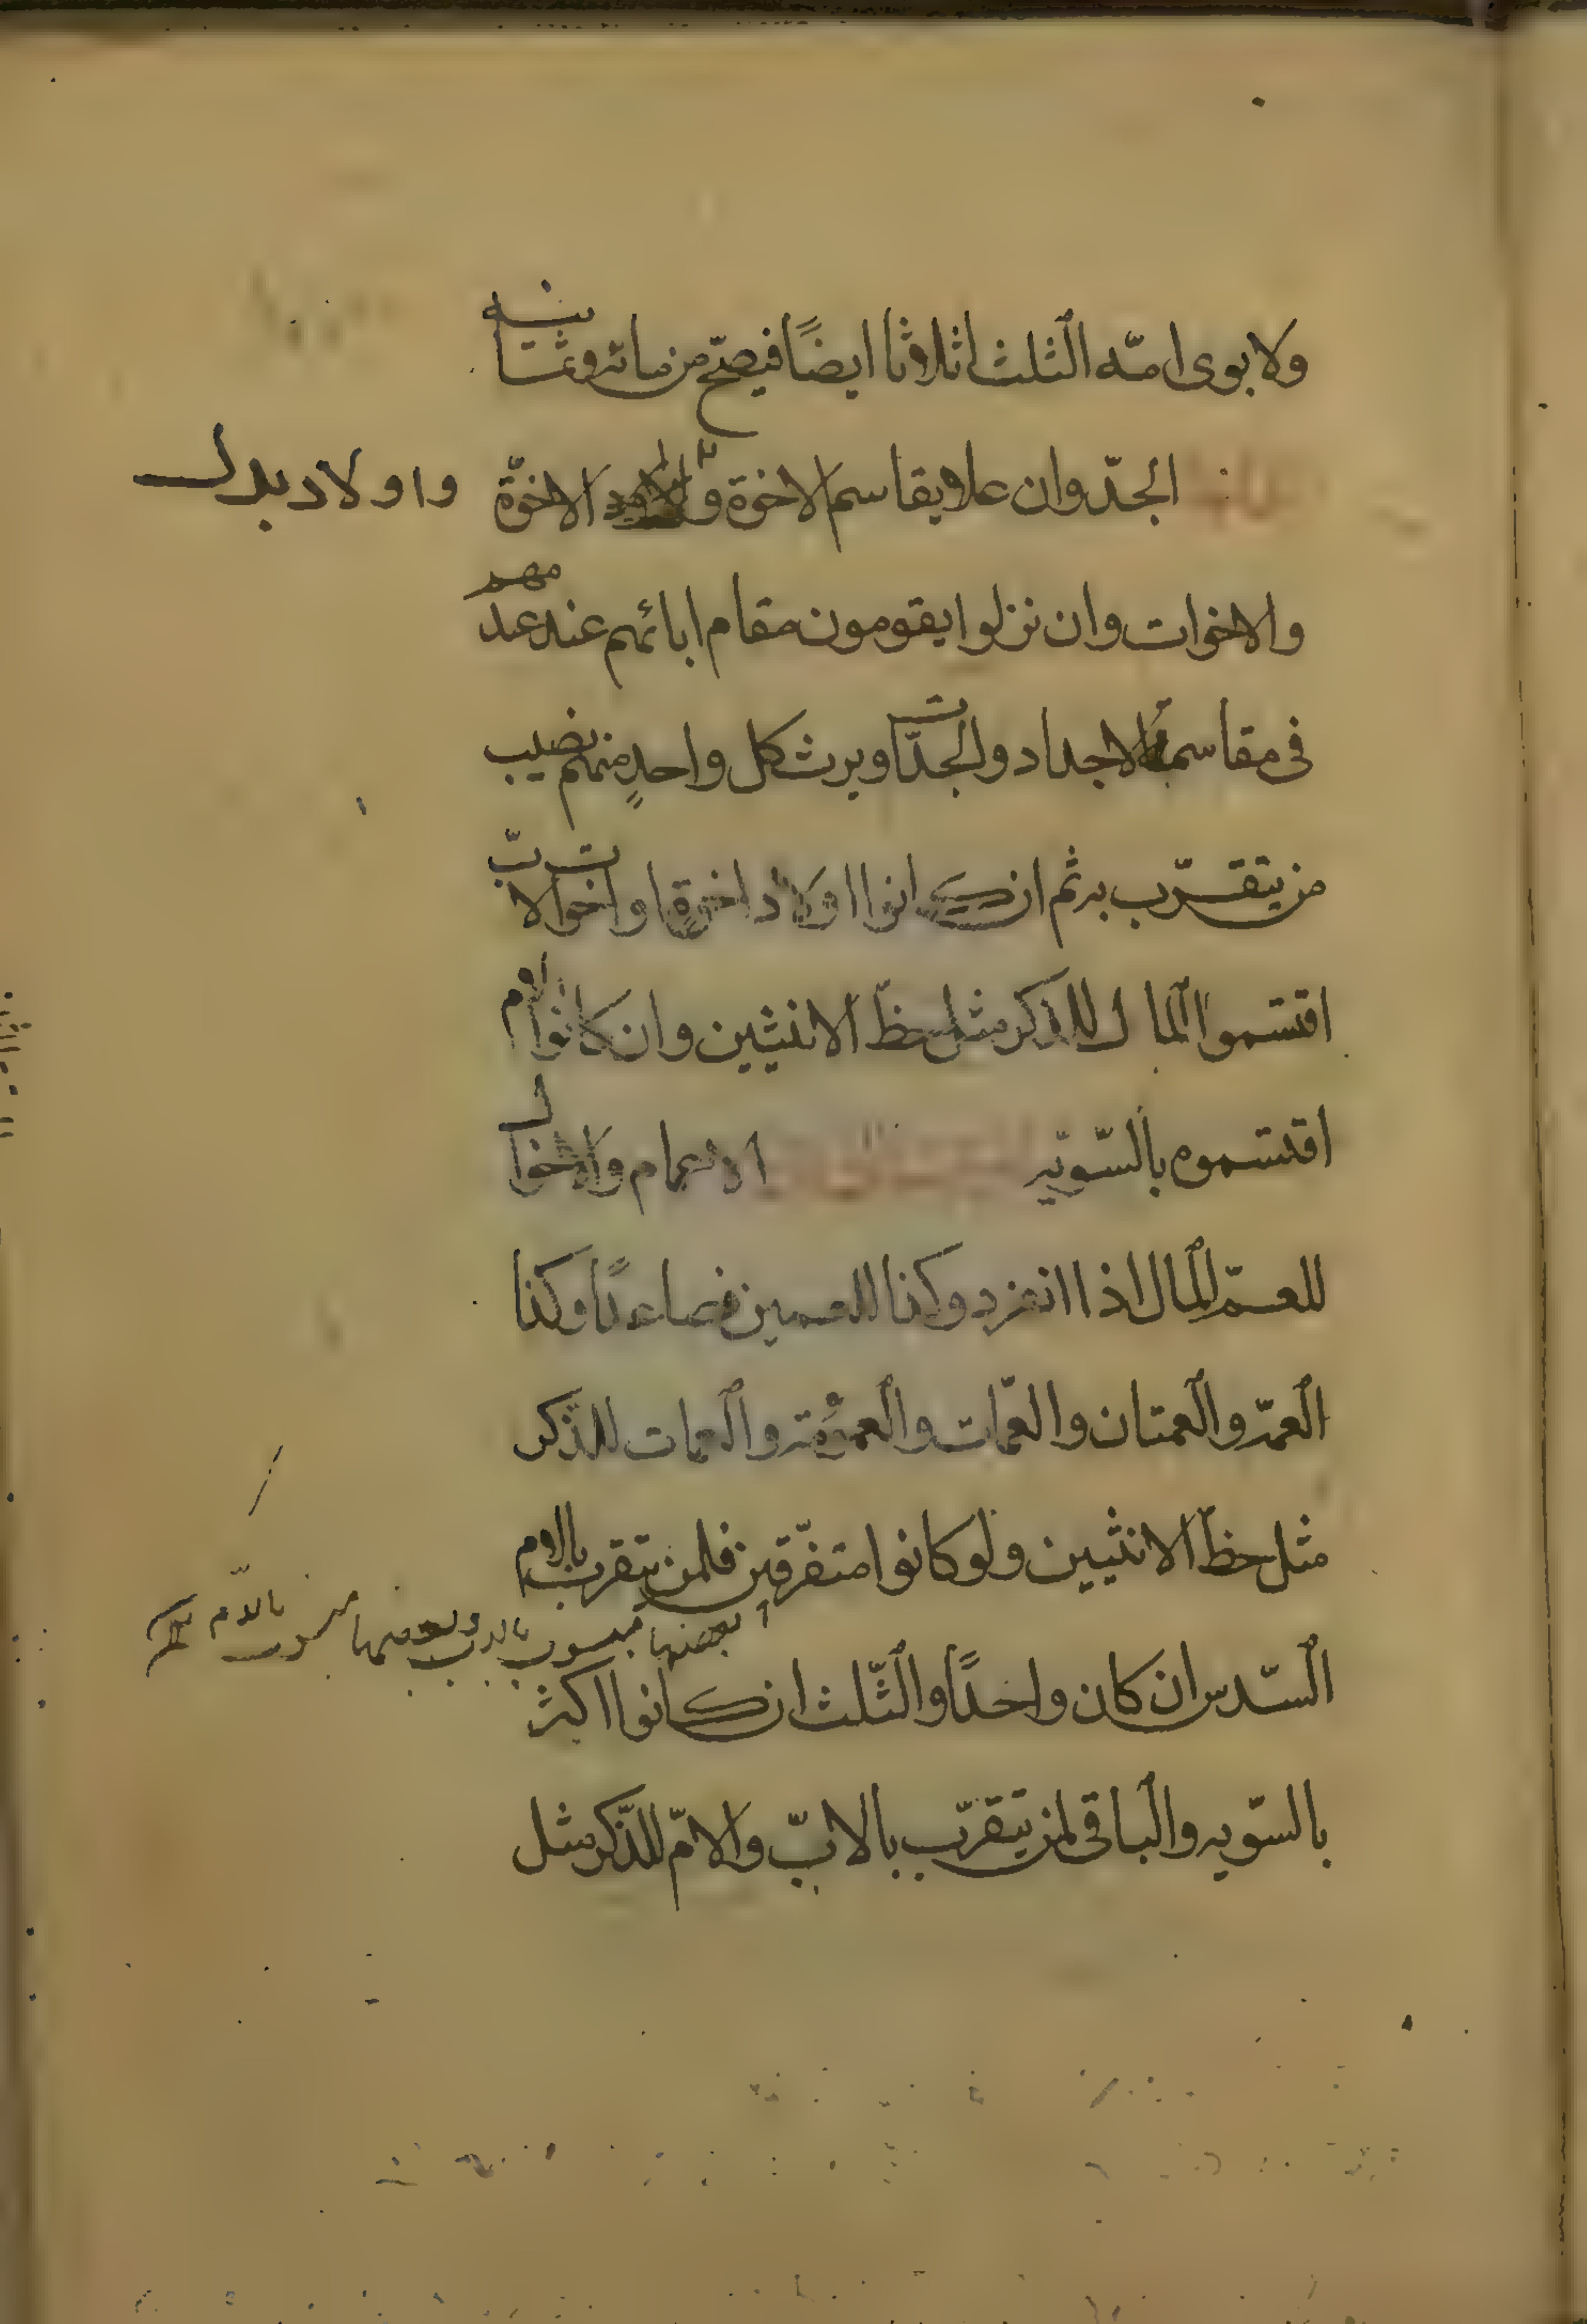 ولابوى امّه الثلث اثلاثا ايضًا فيصحّ من مائه وثمانيه
الجدّ وان علا يقاسم الاخوة و الاخوّة
واولاد بدل
والاخوات وان نزلوا يقومون مقام ابائهم عند عدمهم
فى مقاسمة الاجداد والجدّات ويرث كل واحدٍ منهم نصيب
من يتقرّب به ثم ان كانوا اولاد اخوةٍ او اخوات لابّ
اقتسموا المال للذكر مثل حظّ الانثيين وان كانوا لام
اقتسموه بالسّويّه الاعمام والاخوال
للعمّ المال اذا انفرد وكذا للعمين فصاعدًا وكذا
العمّه والعمتان والعمّات والعمومة والعمات للذّكر
مثل حظّ الانثيين ولو كانوا متفرّقين فلمن يتقرب بالام
بعضها منسوب بالاب وبعضها منسوب بالام
السّدس ان كان واحدًا والثّلث ان كانوا اكثر
بالسّويه والباقى لمن يتقرّب بالابّ والامّ للذّكر مثل